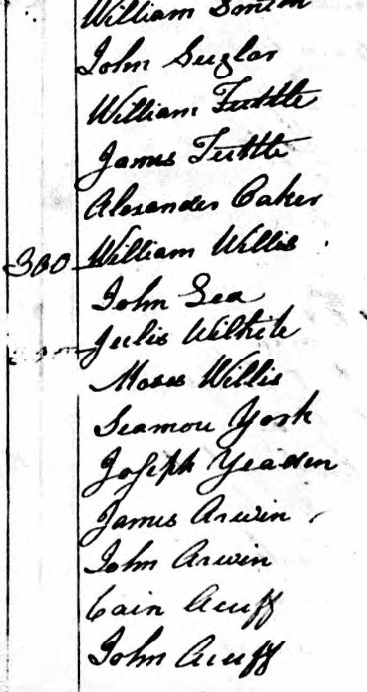 William Smith
John Suglar
William Tuttle
James Tuttle
Alexander Caker
300 William Willis
John Lea
Julis Wilhite
Moses Willis
Seamou York
Joseph Yeaden
James Arwin
John Arwin
Cain Acuff
John Acuff